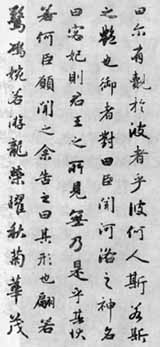 曰尔有覿於彼者乎彼何人斯若斯
之艷也御者對曰臣聞河洛之神名
曰宓妃則君王之所見無乃是乎其狀
若何臣願聞之余告之曰其形也翩若
驚鴻婉若游龍榮曜秋菊華茂